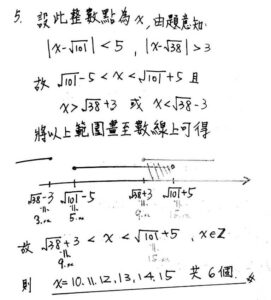 5. 設此整數點為x,由題意知
|x-√101|<5 , |x-√38|>3
故 √101-5 < x < √101+5 且
x>√38+3 或 x<√38-3
將以上範圍畫至數線上可得
√38-3 √101-5 √38+3 √101+5
= = = =
3.… 5.… 9.… 15.…
故 √38+3 < x < √101+5 , x∈Z
= =
9.… 15.…
則 x=10.11.12.13.14.15 共6個